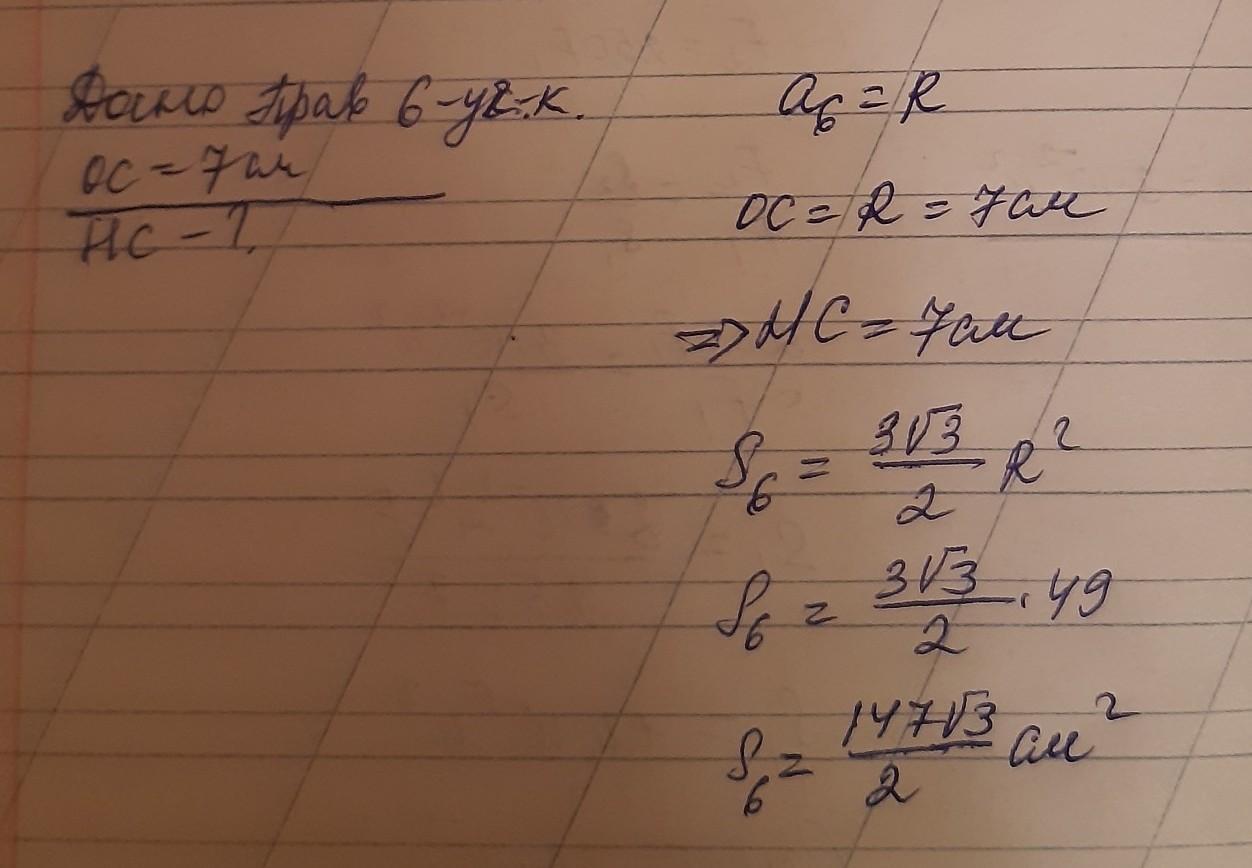 Дано Прав 6-уг-к.
OC = 7 см
HC - ?
a₆ = R
OC = R = 7 см
=> HC = 7 см
S₆ = 3√3/2 R²
S₆ = 3√3/2 · 49
S₆ = 147√3/2 см²